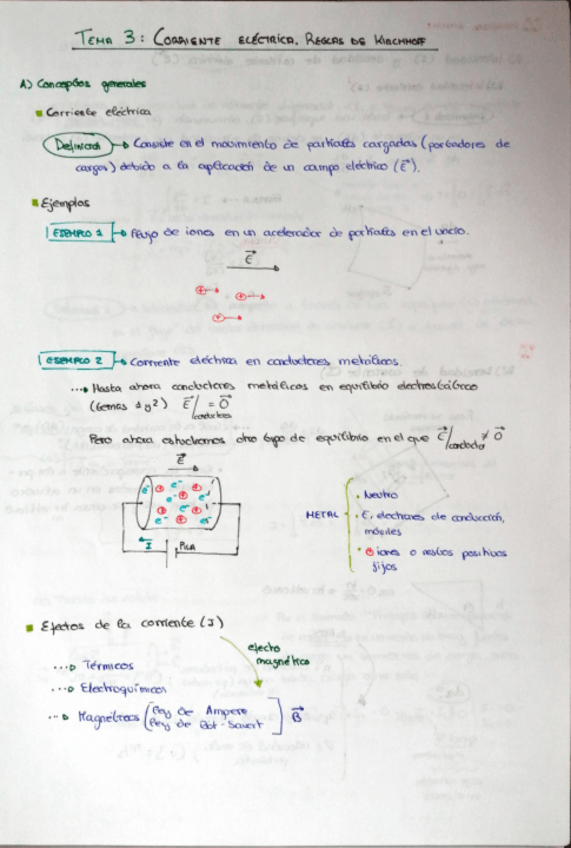 TEMA 3: CORRIENTE ELÉCTRICA. REGLAS DE KIRCHHOFF
A) Conceptos generales
Corriente eléctrica
Definición → Consiste en el movimiento de partículas cargadas (portadores de
cargas) debido a la aplicación de un campo eléctrico (E⃗).
Ejemplos
EJEMPLO 1 → Flujo de iones en un acelerador de partículas en el vacío.
E⃗
⊕→ ⊕→
⊕→
EJEMPLO 2 → Corriente eléctrica en conductores metálicos.
Hasta ahora conductores metálicos en equilibrio electrostático
(temas 1 y 2) E⃗/conductores = 0⃗
Pero ahora estudiaremos otro tipo de equilibrio en el que E⃗/conductor ≠ 0⃗
E⃗
e⁻ ⊕ e⁻ ⊕ e⁻
I PILA
METAL
· Neutro
· e⁻ electrones de conducción,
móviles
· ⊕ iones o restos positivos
fijos
Efectos de la corriente (I)
efecto
magnético
Térmicos
Electroquímicos
Magnéticos (Ley de Ampere
Ley de Biot-Savart) B⃗